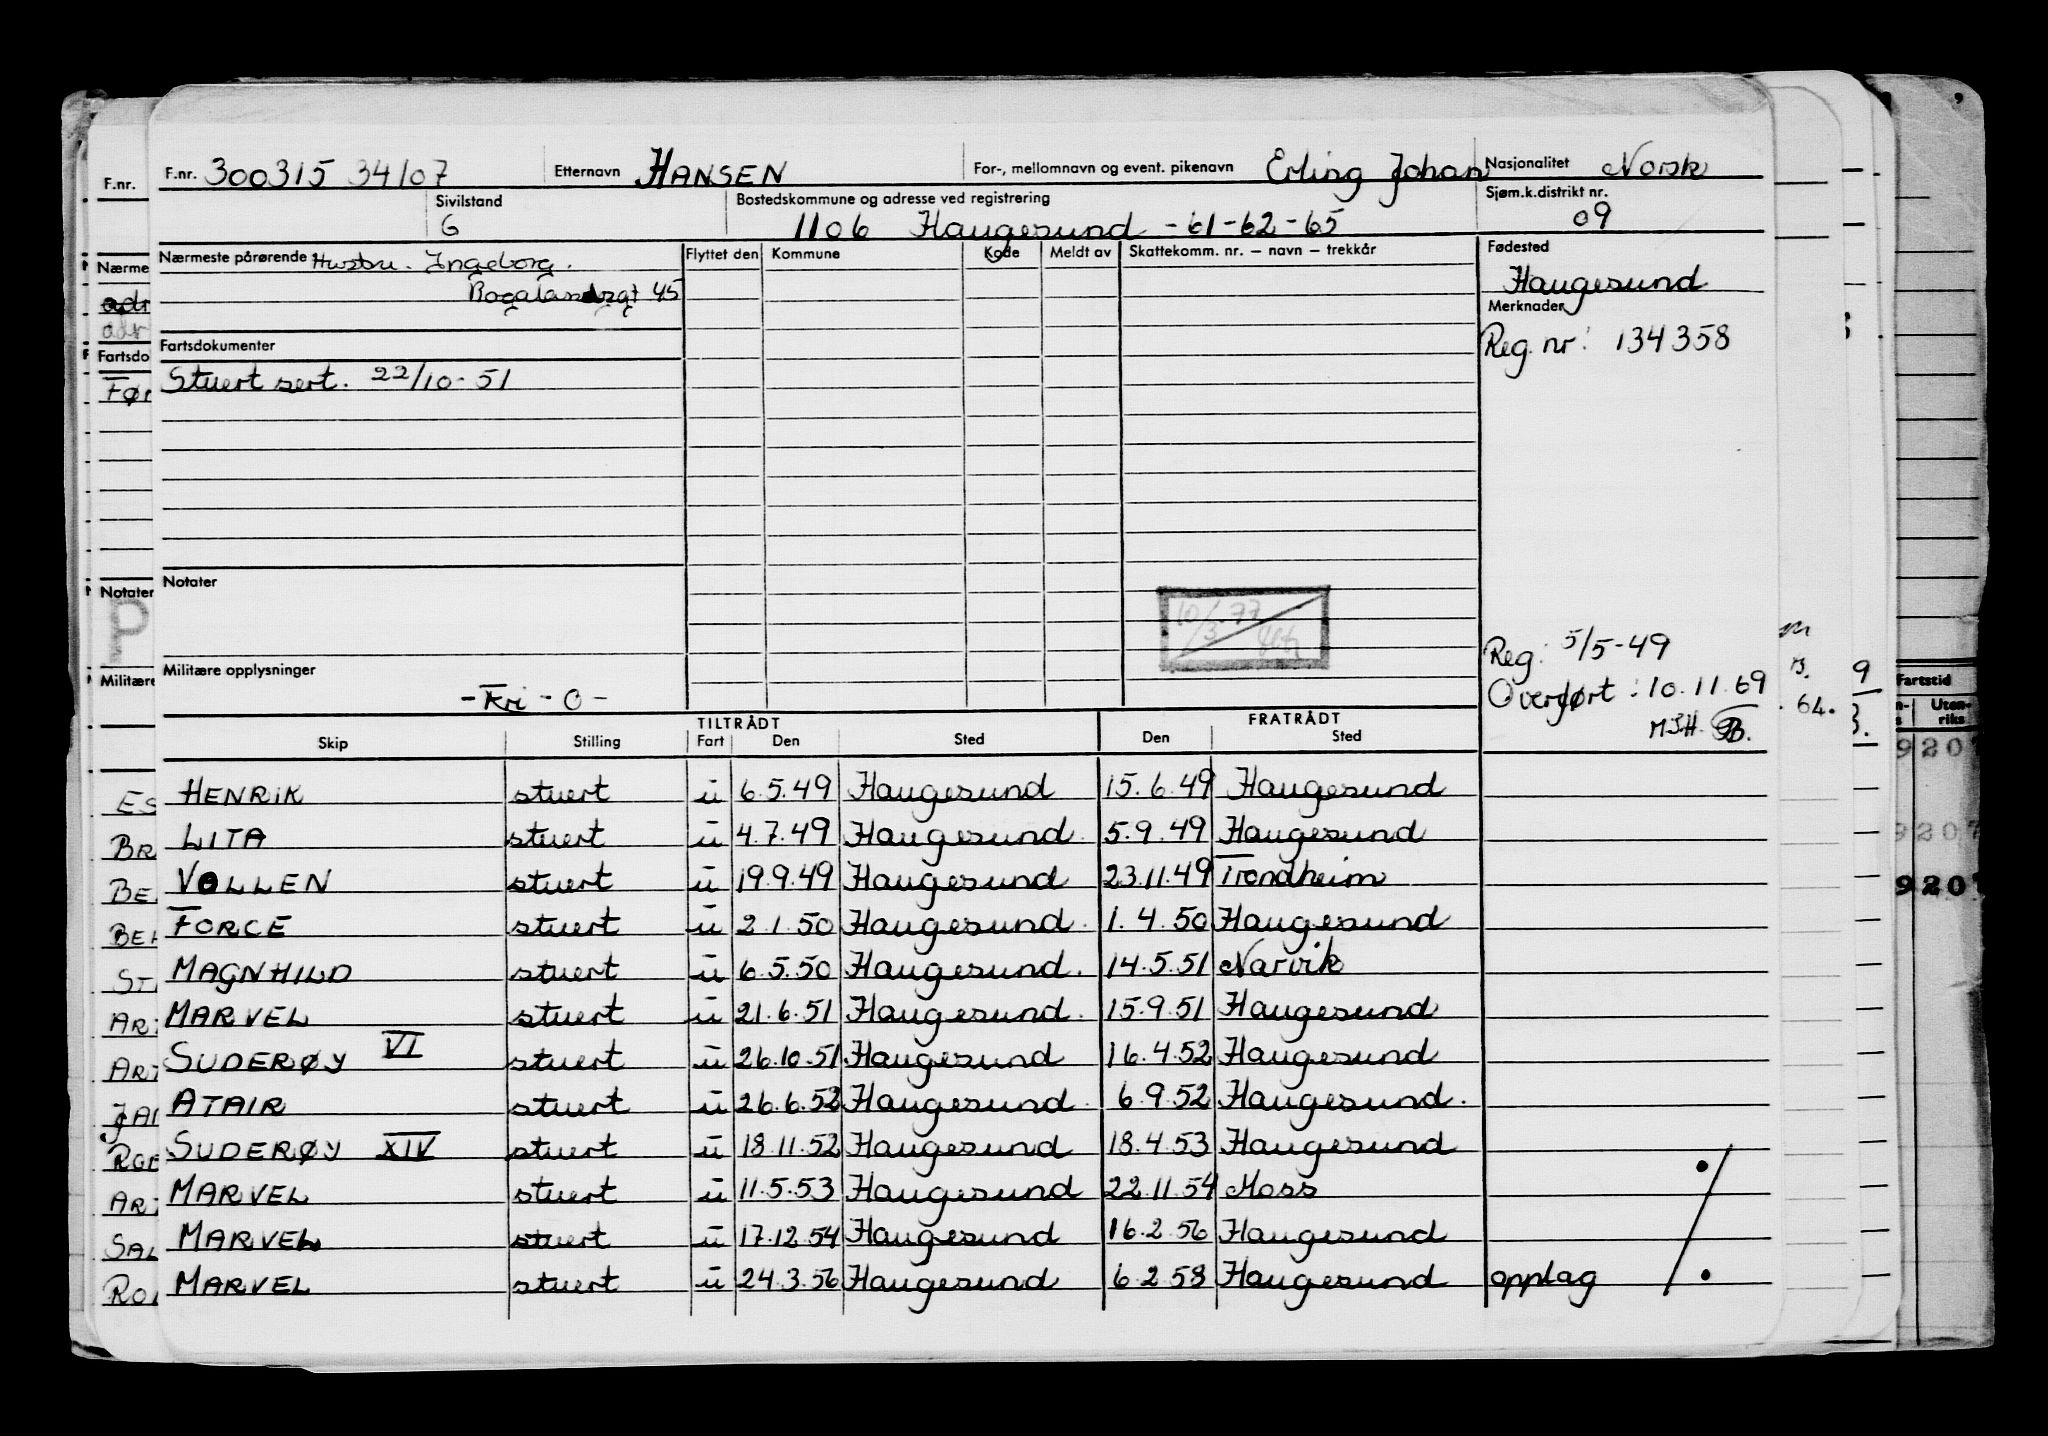 F.nr. 300315 34107 Etternavn HANSEN For-, mellomnavn og event. pikenavn Erling Johan Nasjonalitet Norsk
Sivilstand G Bostedskommune og adresse ved registrering 1106 Haugesund - 61 - 62 - 65 Sjøm.k.distrikt nr. 09
Nærmeste pårørende Hustru. Ingeborg. Flyttet den Kommune Kode Meldt av Skattekomm. nr. – navn – trekkår Fødested
Haugesund
45
Merknader
Reg. nr: 134358
Fartsdokumenter
Stuert sert. 22/10-51
Notater
10/3.77
Reg: 5/5-49
Overført: 10.11.69
MJH
Militære opplysninger
- Kri - O -
TILTRÅDT FRATRÅDT
Skip Stilling Fart Den Sted Den Sted
HENRIK stuert u 6.5.49 Haugesund 15.6.49 Haugesund
LITA stuert u 4.7.49 Haugesund 5.9.49 Haugesund
VOLLEN stuert u 19.9.49 Haugesund 23.11.49 Trondheim
FORCE stuert u 2.1.50 Haugesund 1.4.50 Haugesund
MAGNHILD stuert u 6.5.50 Haugesund. 14.5.51 Narvik
MARVEL stuert u 21.6.51 Haugesund 15.9.51 Haugesund
SUDERØY VI stuert u 26.10.51 Haugesund 16.4.52 Haugesund
ATAIR stuert u 26.6.52 Haugesund 6.9.52 Haugesund.
SUDERØY XIV stuert u 18.11.52 Haugesund 18.4.53 Haugesund
MARVEL stuert u 11.5.53 Haugesund 22.11.54 Moss
MARVEL stuert u 17.12.54 Haugesund 16.2.56 Haugesund
MARVEL stuert u 24.3.56 Haugesund 6.2.58 Haugesund opplag
F.nr.
Nærme
adr
adr
Fartsdo
Før
Notater
P
Militære
ES
BR
BE
BEH
ST
ART
ART
JAR
ROA
ART
SAL
ROA
64.
9
Fartstid
Uten-
riks
9207
9207
9207